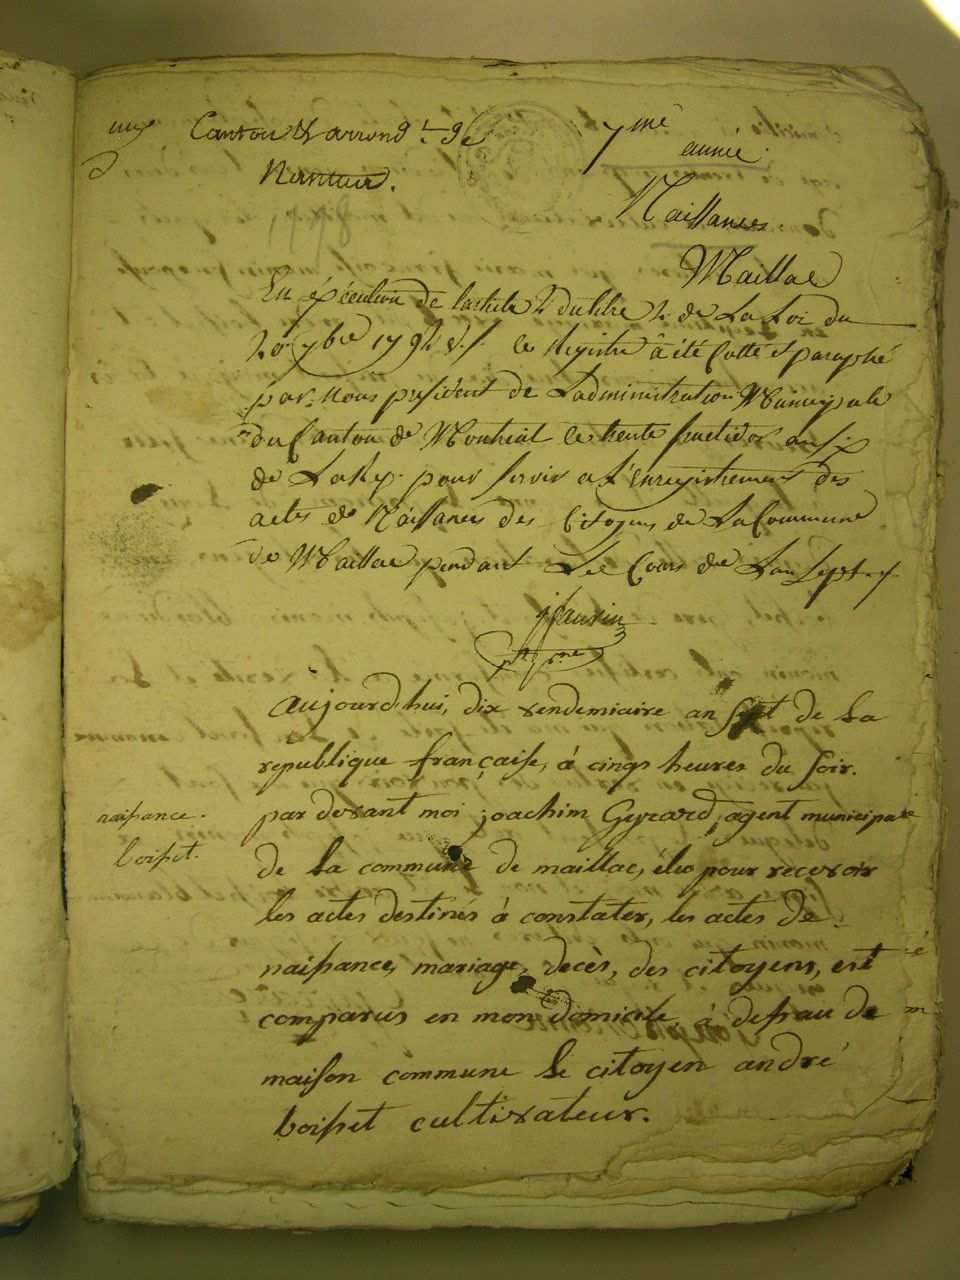 Canton & arrond.t de
Nantua.
7me
année.
Naissances.
Maillac
En éxécution de larticle 2 du titre 2 de La Loi du
20 7bre 1792 v.s. ce Registre à été Cotté et paraphé
par Nous président de Ladministration Municipale
du Canton de Montreal le trente fructidor an six
de La Rep. pour servir a L'enregistrement des
actes de Naissances des Citoyens de La Commune
de Maillac pendant Le Cours de Lan Sept
aujourd'hui, dix vendemiaire an sept de la
republique française, à cinqs heures du soir.
naissance.
boisset.
par devant moi joachim Gyrard, agent municipale
de la commune de maillac, élu pour recevoir
les actes destinés à constater, les actes de
naissance, mariage, decès, des citoyens, est
comparus en mon domicile à defsau de
maison commune le citoyen andré
boisset cultivateur.